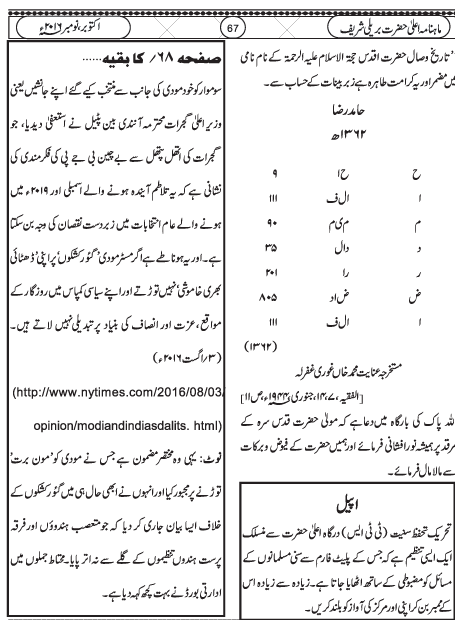 ماہنامہ اعلیٰ حضرت بریلی شریف
67
اکتوبر، نومبر ۲۰۱۶ء
"تاریخ وصال حضرت اقدس حجۃ الاسلام علیہ الرحمۃ کے نام نامی
میں مضمر اور یہ کرامت طاہرہ ہے زبر بینات کے حساب سے۔
حامد رضا
۱۳۶۲ھ
ح حا ۹
ا ال ف ۱۱۱
م م ی م ۹۰
د دال ۳۵
ر را ۲۰۱
ض ض اد ۸۰۵
ا ال ف ۱۱۱
(۱۳۶۲)
مستخرجہ عنایت محمد خاں غوری غفرلہ
[الفقیہ، ۷، ۱۴، جنوری ۱۹۴۴ء، ص ۱۱]
اللہ پاک کی بارگاہ میں دعا ہے کہ مولیٰ حضرت قدس سرہ کے
مرقد پر ہمیشہ نور افشانی فرمائے اور ہمیں حضرت کے فیوض و برکات
سے مالا مال فرمائے۔
اپیل
تحریک تحفظ سنیت (ٹی ٹی ایس) درگاہ اعلیٰ حضرت سے منسلک
ایک ایسی تنظیم ہے کہ جس کے پلیٹ فارم سے سنی مسلمانوں کے
مسائل کو مضبوطی کے ساتھ اٹھایا جاتا ہے۔ زیادہ سے زیادہ اس
کے ممبر بن کر اپنی اور مرکز کی آواز کو بلند کریں۔
صفحہ ۶۸/ کا بقیہ......
سوموار کو خود مودی کی جانب سے منتخب کیے گئے اپنے جانشیں یعنی
وزیر اعلیٰ گجرات محترمہ آنندی بین پٹیل نے استعفیٰ دیدیا، جو
گجرات کی اتھل پتھل سے بے چین بی جے پی کی فکرمندی کی
نشانی ہے کہ یہ تلاطم آیندہ ہونے والے اسمبلی اور ۲۰۱۹ء میں
ہونے والے عام انتخابات میں زبردست نقصان کی وجہ بن سکتا
ہے۔ اور یہ ہونا طے ہے اگر مسٹر مودی 'گئور کشکوں' پر اپنی 'ڈھٹائی
بھری خاموشی' نہیں توڑتے اور اپنے سیاسی کمپاس میں روزگار کے
مواقع، عزت اور انصاف کی بنیاد پر تبدیلی نہیں لاتے ہیں۔
(۳/اگست ۲۰۱۶ء)
(http://www.nytimes.com/2016/08/03/
opinion/modiandindiasdalits. html)
نوٹ: یہی وہ مختصر مضمون ہے جس نے مودی کو 'مون برت'
توڑنے پر مجبور کیا اور انہوں نے ابھی حال ہی میں گئور کشکوں کے
خلاف ایسا بیان جاری کر دیا کہ جو متعصب ہندوؤں اور فرقہ
پرست ہندوں تنظیموں کے گلے سے نہ اتر پایا۔ محتاط جملوں میں
ادارتی بورڈ نے بہت کچھ کہہ دیا ہے۔